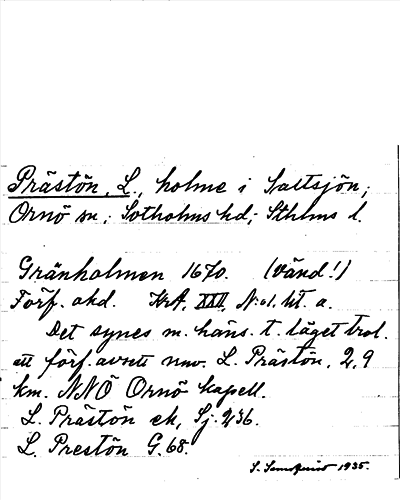 Prästön, L., holme i Saltsjön,
Ornö sn; Sotholms hd; Sthlms l.
Gränholmen 1670. (vänd!)
Förf. okd. KrA, XXII, N:o1. lit. a.
Det synes m. häns. t. läget trol.
att förf. avsett nuv. L. Prästön, 2,9
km. NNÖ Ornö kapell.
L. Prästön ek, Sj. 236.
L. Prestön G. 68.
1935.